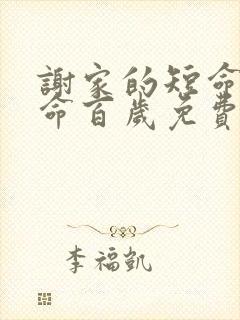 謝家的短命
命百歲免費
李福凱